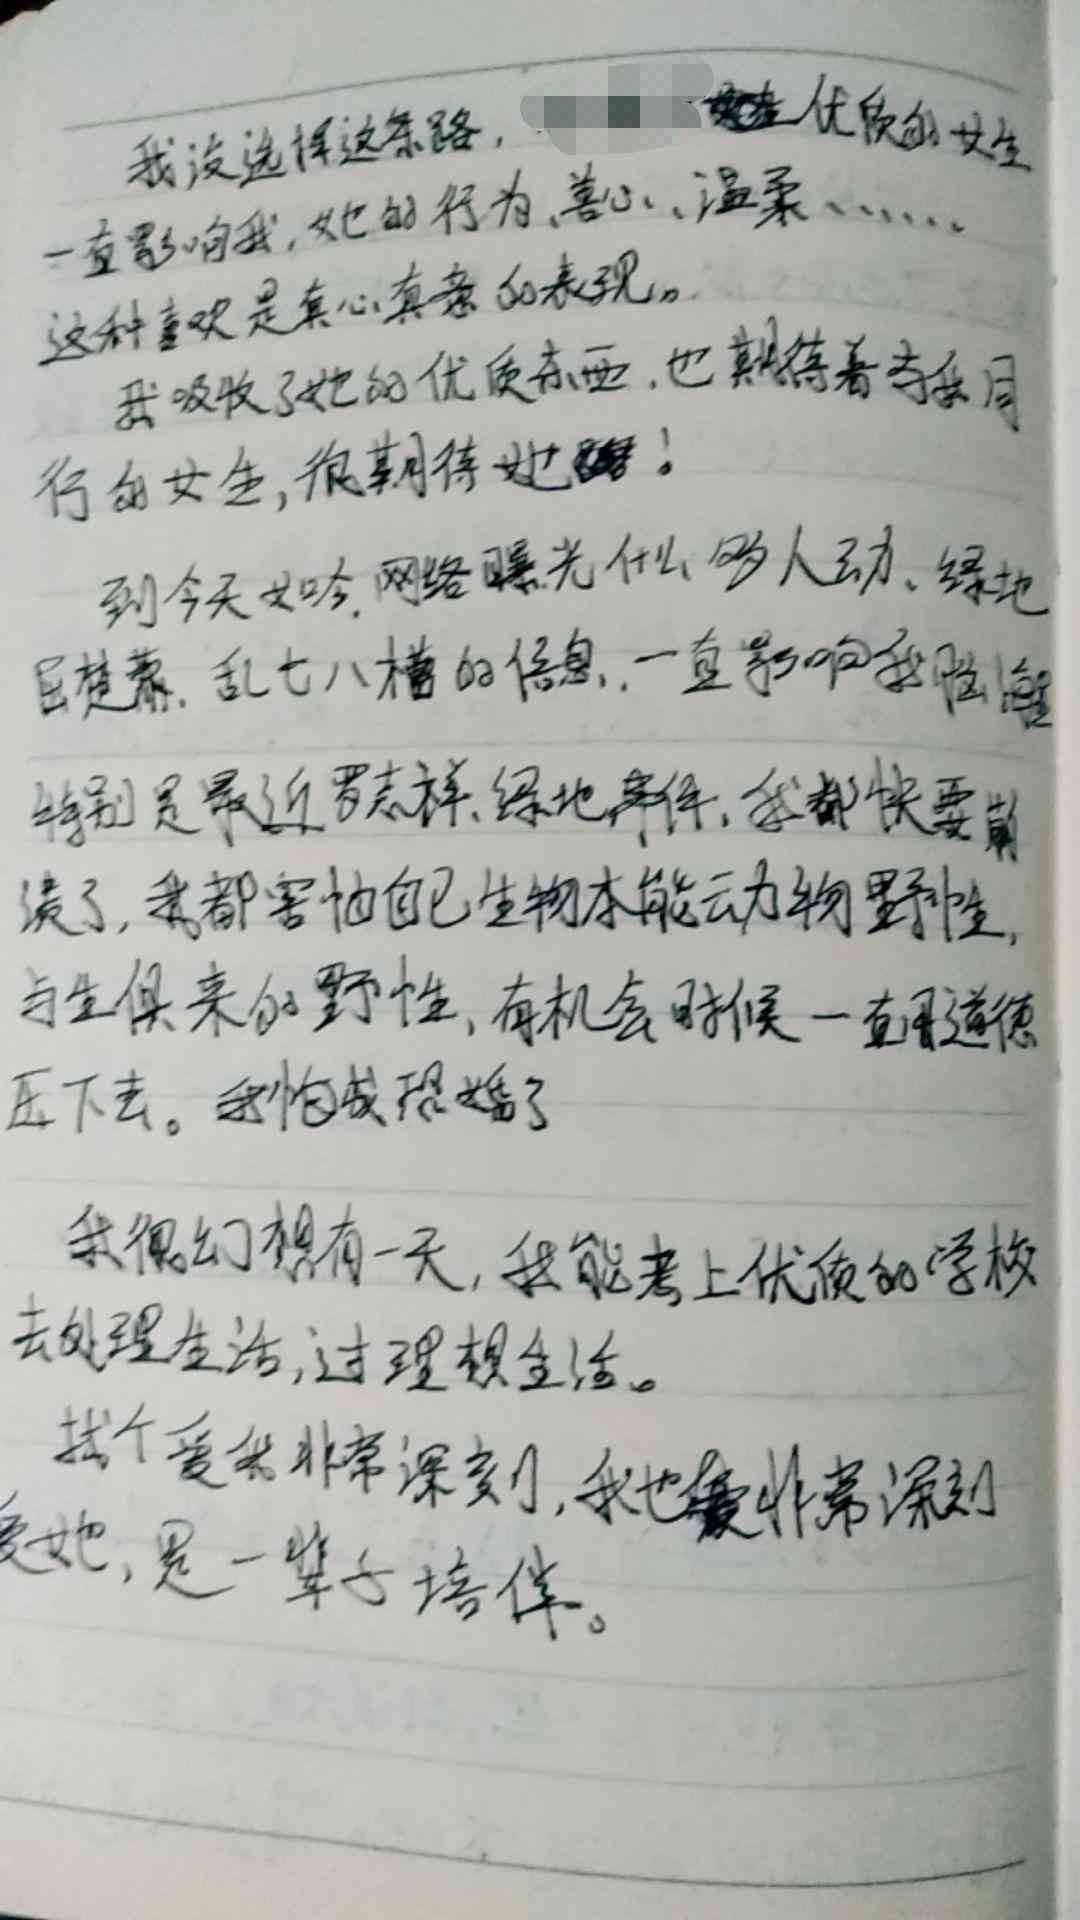 我没选择这条路， 优质的女生
一直影响我，她的行为、善心、温柔、……
这种喜欢是真心真意的表现。
我吸收了她的优质东西，也期待着与我同
行的女生，很期待她！
到今天女吟，网络曝光什么多人动、绿地
屈楚萧，乱七八糟的信息，一直影响我脑海
特别是最近罗志祥、绿地事件，我都快要崩
溃了，我都害怕自己生物本能动物野性，
与生俱来的野性，有机会时候一直用道德
压下去。我怕成恐婚了
我很幻想有一天，我能考上优质的学校
去处理生活，过理想生活。
找个爱我非常深刻，我也非常深刻
爱她，是一辈子培伴。